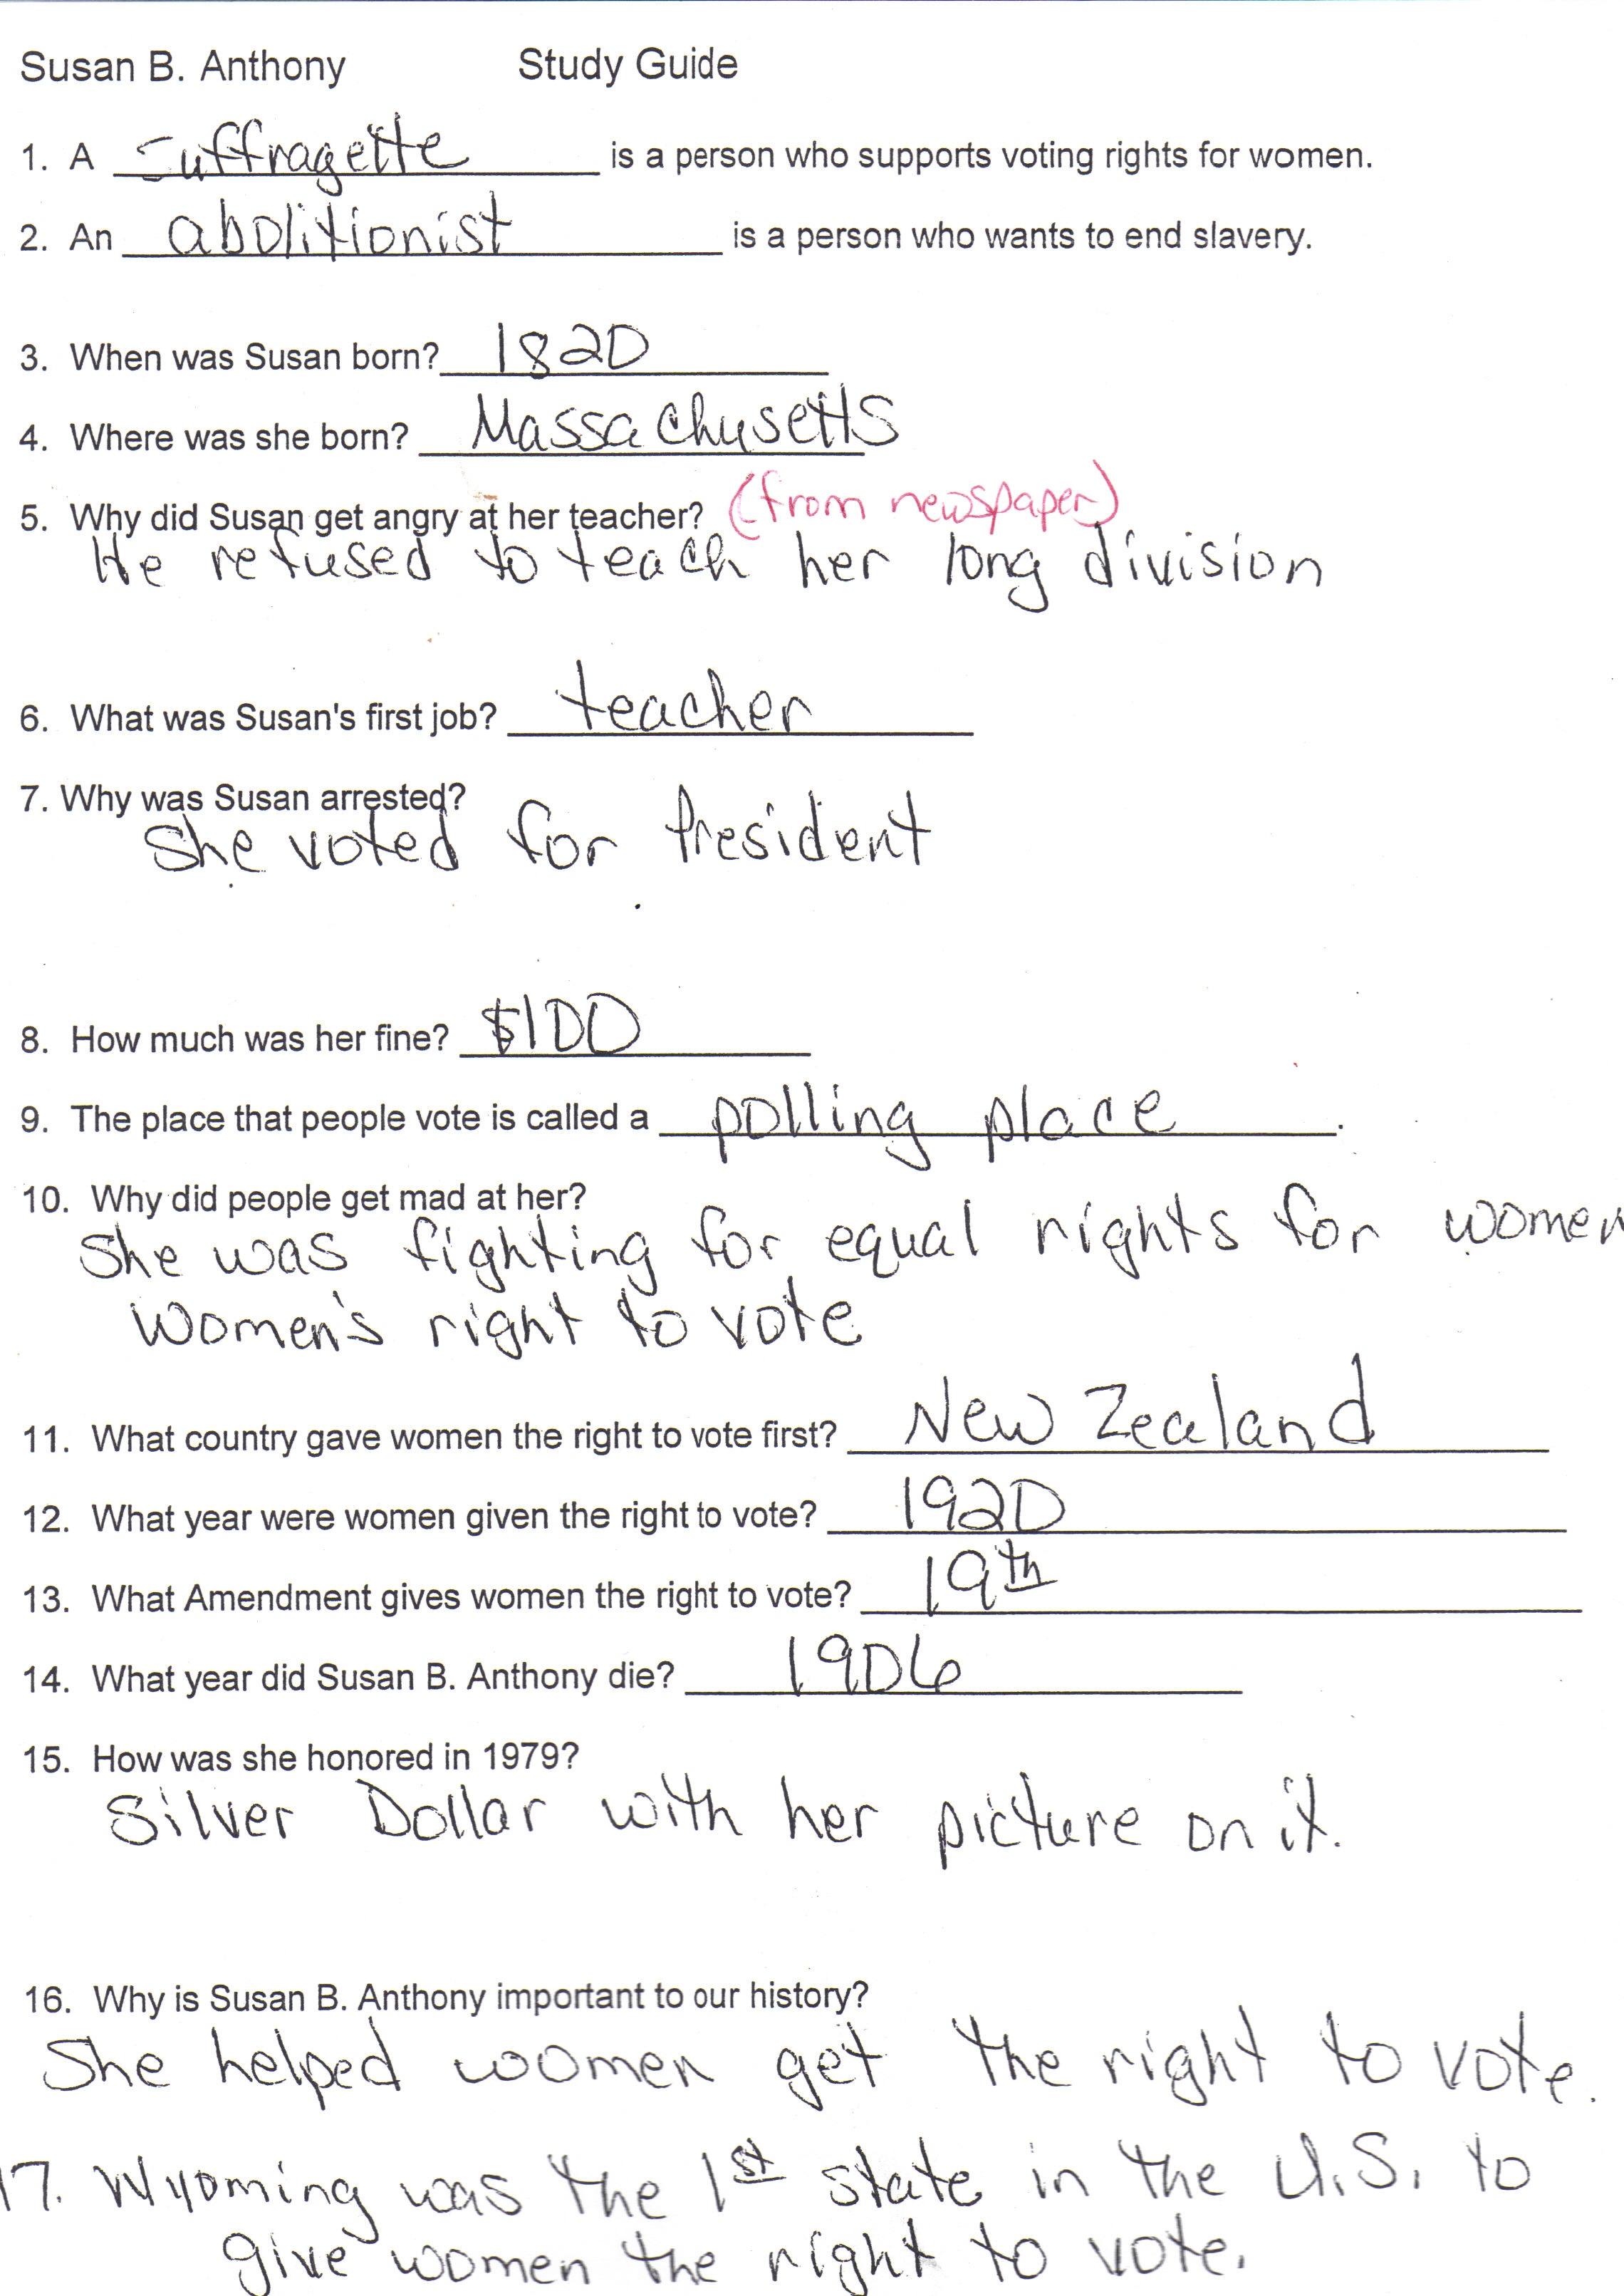 Susan B. Anthony Study Guide
1. A suffragette is a person who supports voting rights for women.
2. An abolitionist is a person who wants to end slavery.
3. When was Susan born? 1820
4. Where was she born? Massachusetts
5. Why did Susan get angry at her teacher? (from newspaper)
He refused to teach her long division
6. What was Susan's first job? teacher
7. Why was Susan arrested?
She voted for President
8. How much was her fine? $100
9. The place that people vote is called a polling place.
10. Why did people get mad at her?
She was fighting for equal rights for women
Women's right to vote
11. What country gave women the right to vote first? New Zealand
12. What year were women given the right to vote? 1920
13. What Amendment gives women the right to vote? 19th
14. What year did Susan B. Anthony die? 1906
15. How was she honored in 1979?
Silver Dollar with her picture on it.
16. Why is Susan B. Anthony important to our history?
She helped women get the right to vote.
17. Wyoming was the 1st state in the U.S. to
give women the right to vote.